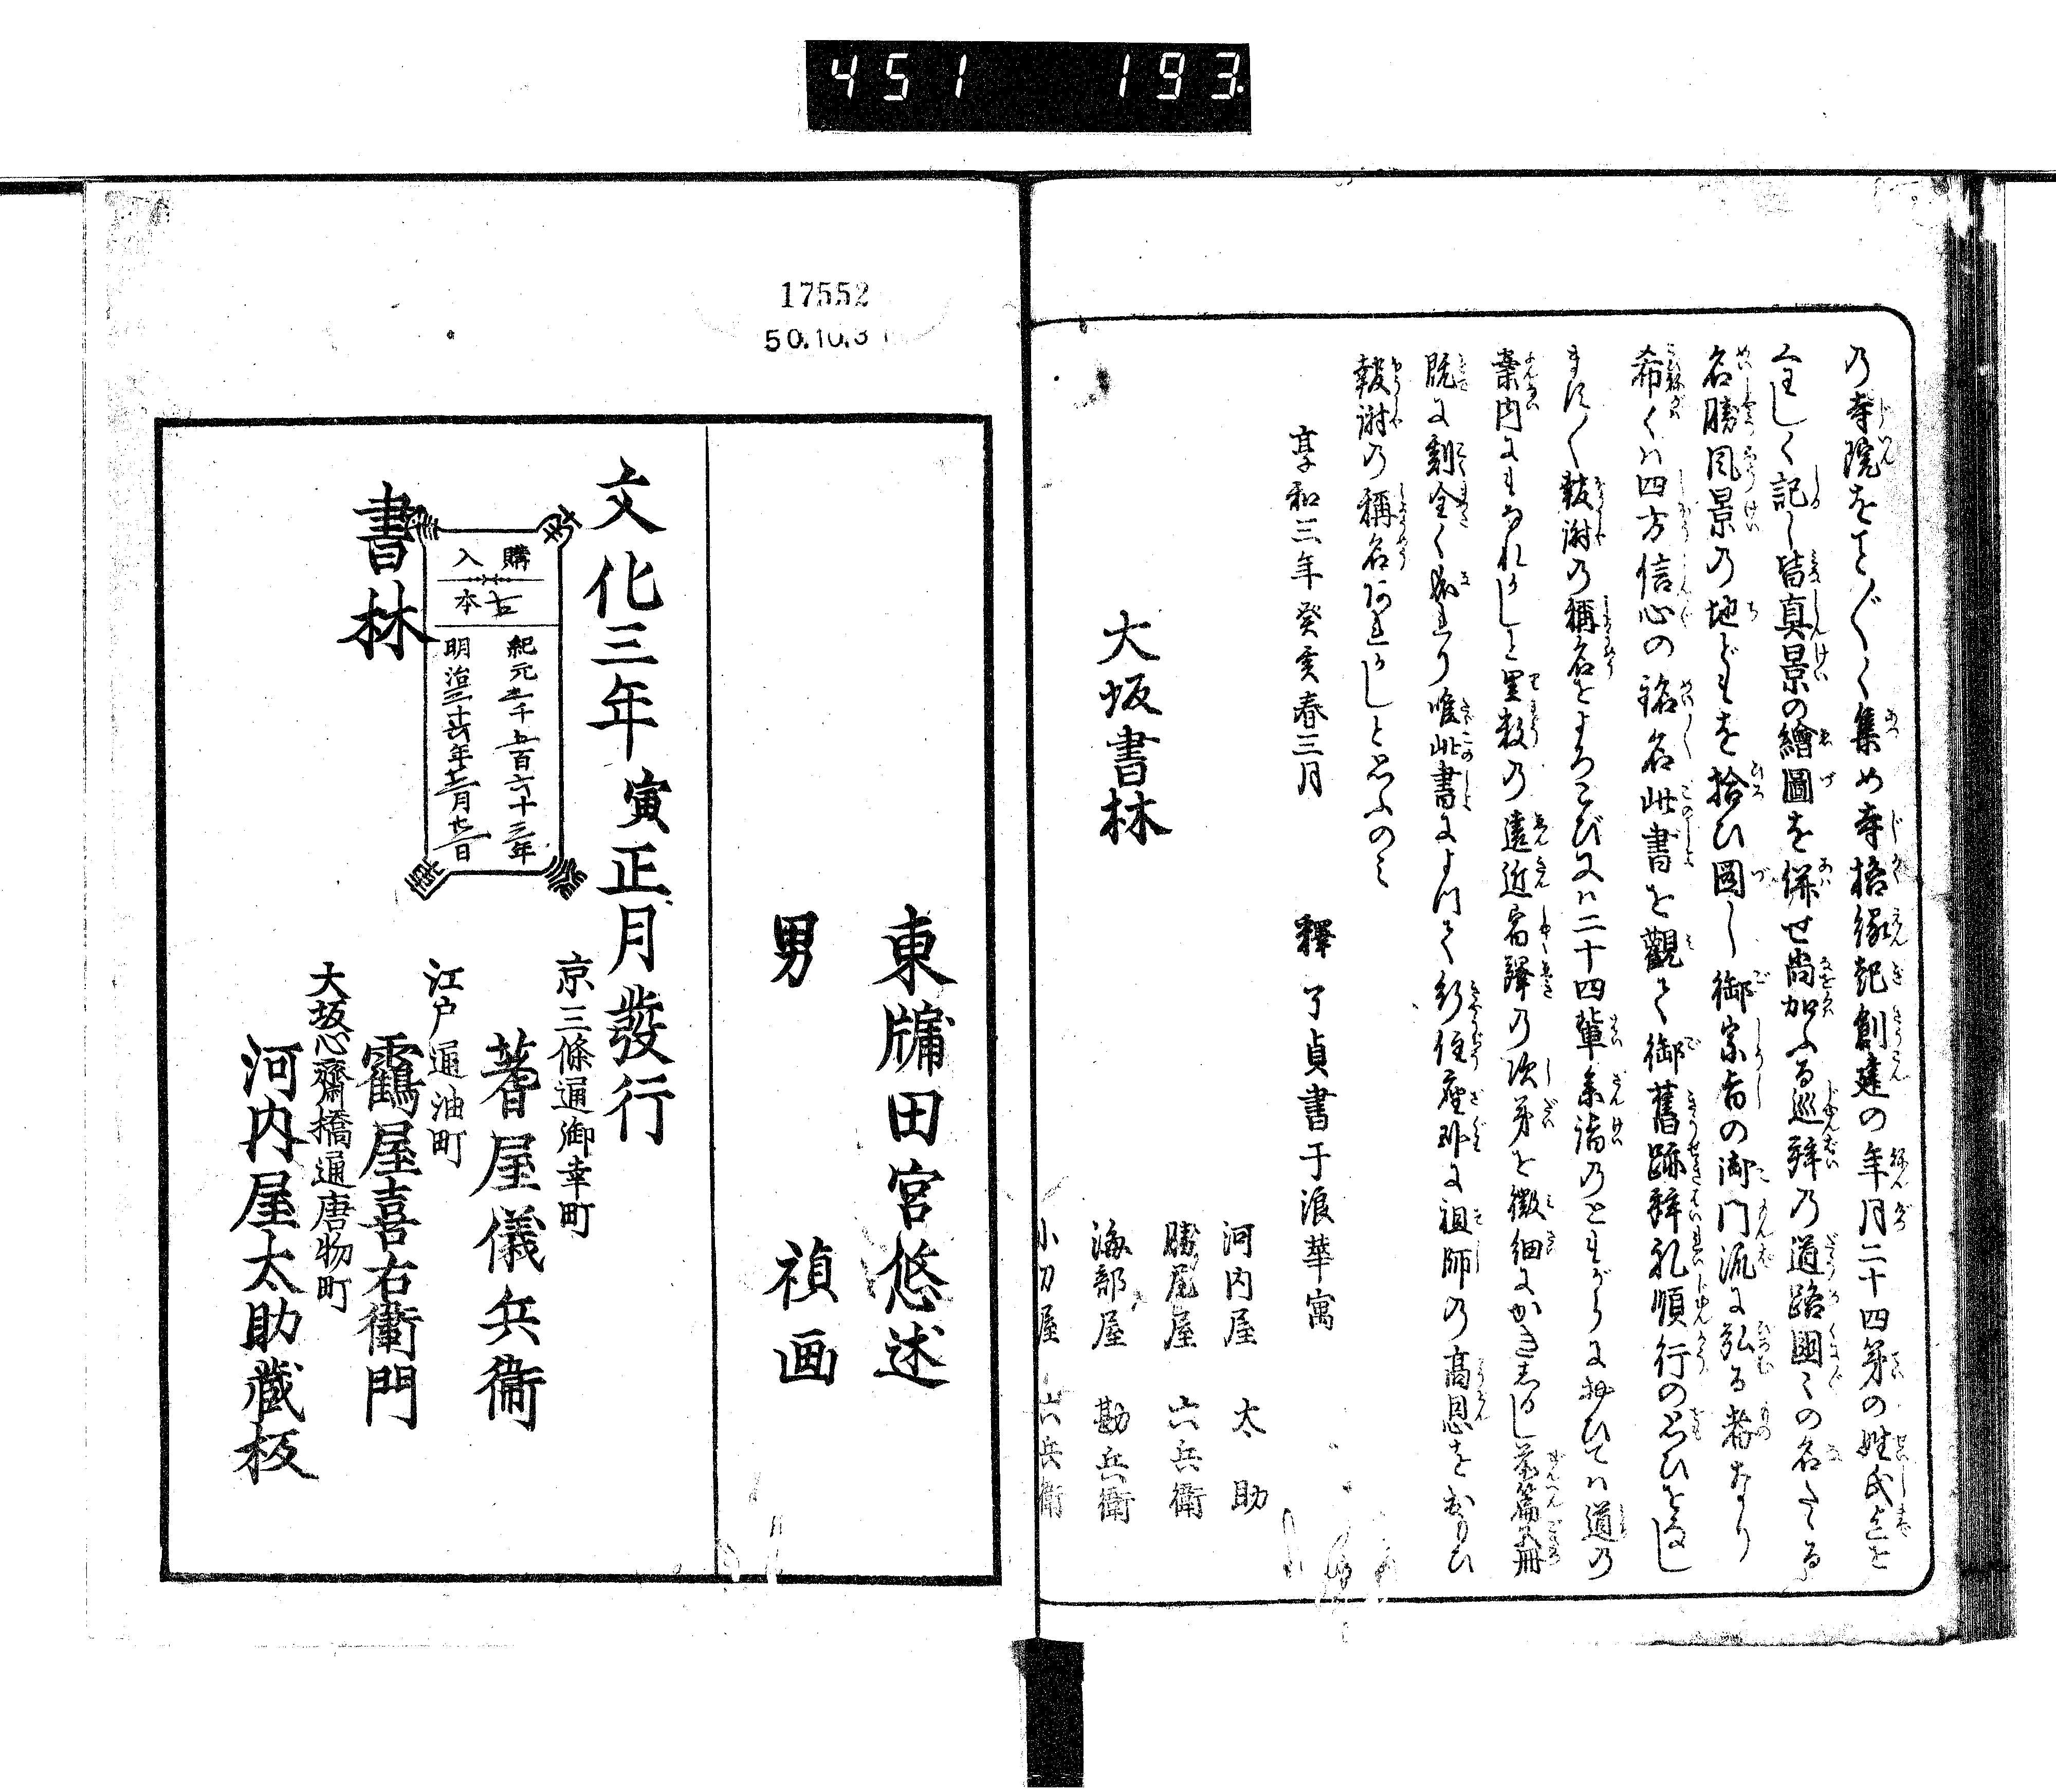 451 193.
の寺院をこと〴〵く集め寺格縁起創建の年月二十四輩の姓氏迄を
くわしく記し皆真景の繪圖を併せ尚加ふる巡拜の道路國々の名たゝる
名勝風景の地どもを拾ひ圖し御宗旨の御門流に弘る者なり
希くハ四方信心の銘々此書を觀て御舊跡拜礼順行の思ひをなし
ます〳〵報謝の稱名をよろこび又ハ二十四輩参詣のともがらに於ひてハ道の
案内にもなれかしと里数の遠近宿驛の次第を微細にかきしるし前篇五冊
既に刻全く成れり唯此書によつて行住座臥に祖師の高恩をおもひ
報謝の稱名あれかしと思ふのミ
享和三年癸亥春三月
釋 了貞書于浪華寓
大坂書林
河内屋 太助
勝尾屋 六兵衛
海部屋 勘兵衛
小刀屋 六兵衛
17552
50.10.31
東牗田宮悠述
男 禎画
文化三年寅正月發行
購入
古本
紀元二千五百六十三年
明治三十六年十二月廿二日
書林
京三條通御幸町
蓍屋儀兵衞
江户通油町
鶴屋喜右衞門
大坂心齋橋通唐物町
河内屋太助藏板